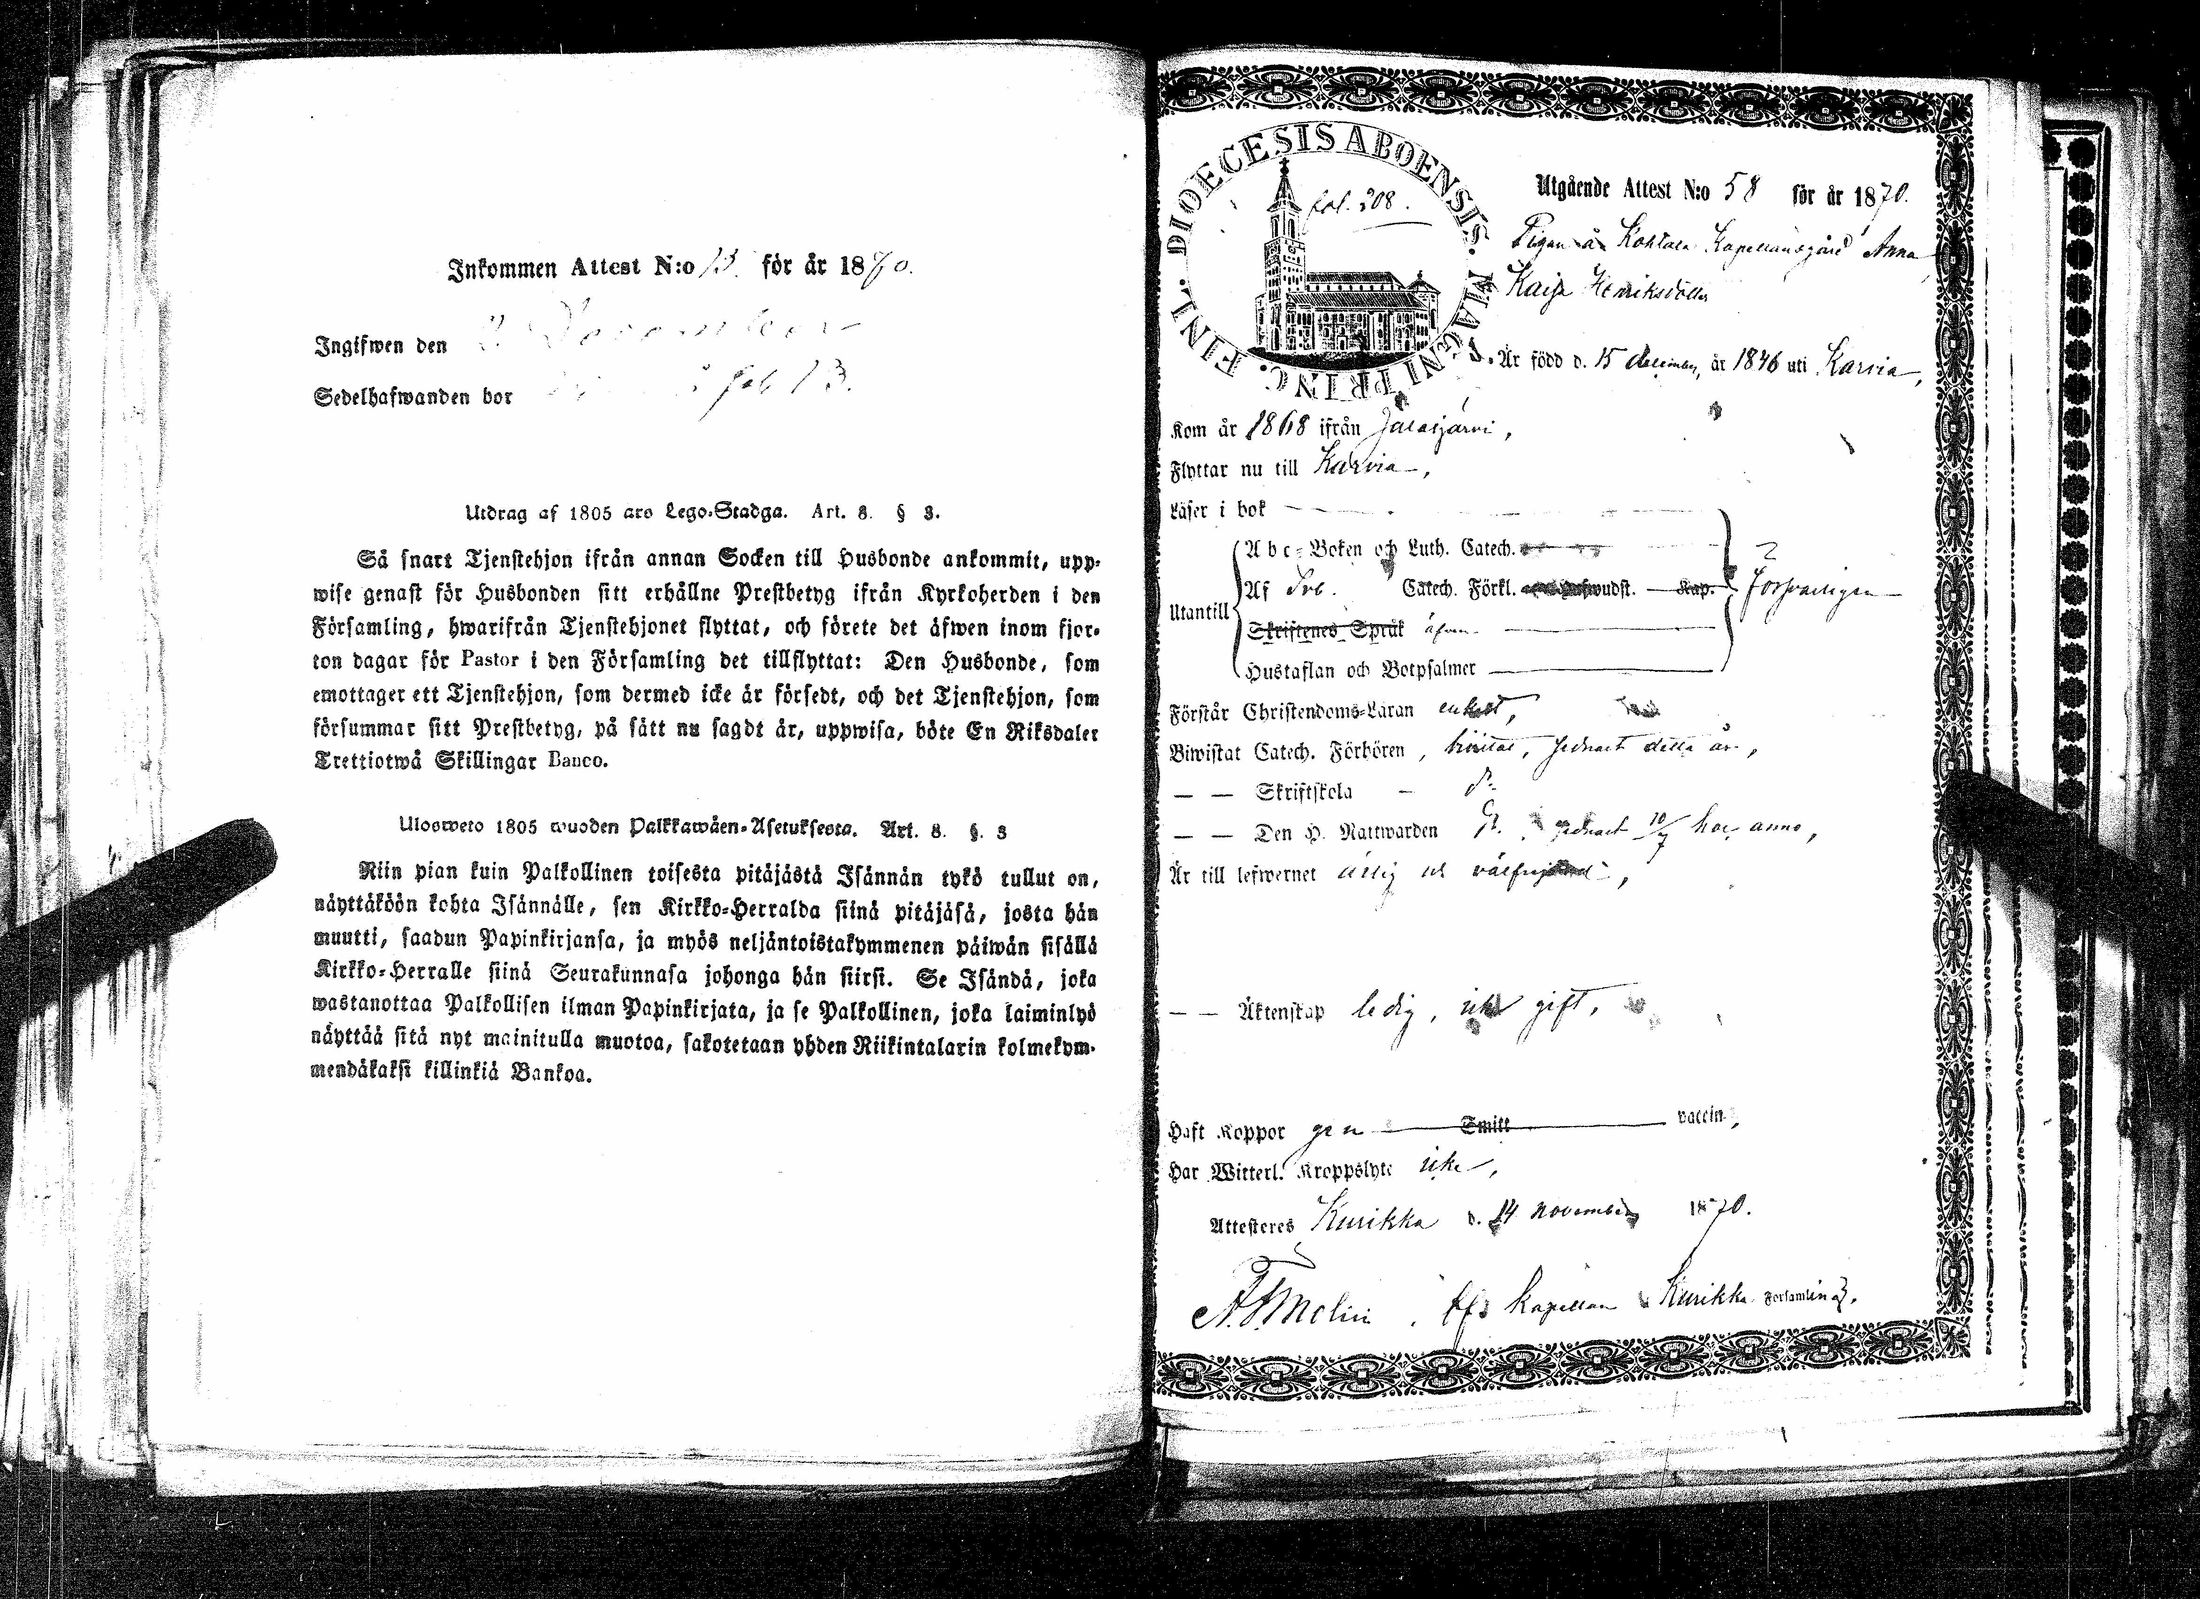 Inkommen Attest N:o 13. för år 1870.
Ingifwen den 2 December
Sedelhafwanden bor fol. 13.
Utdrag af 1805 års Lego-Stadga. Art. 8. § 3.
Så snart Tjenstehjon ifrån annan Socken till Husbonde ankommit, upp-
wise genast för Husbonden sitt erhållne Prestbetyg ifrån Kyrkoherden i den
Församling, hwarifrån Tjenstehjonet flyttat, och förete det äfwen inom fjor-
ton dagar för Pastor i den Församling det tillflyttat: Den Husbonde, som
emottager ett Tjenstehjon, som dermed icke är försedt, och det Tjenstehjon, som
försummar sitt Prestbetyg, på sätt nu sagdt är, uppwisa, böte En Riksdaler
Trettiotwå Skillingar Banco.
Ulosweto 1805 wuoden Palkkawäen-Asetuksesta. Art. 8. §. 3
Niin pian kuin Palkollinen toisesta pitäjästä Isännän tykö tullut on,
näyttäköön kohta Isännälle, sen Kirkko-Herralda siinä pitäjäsä, josta hän
muutti, saadun Papinkirjansa, ja myös neljäntoistakymmenen päiwän sisällä
Kirkko-Herralle siinä Seurakunnasa johonga hän siirsi. Se Isändä, joka
wastanottaa Palkollisen ilman Papinkirjata, ja se Palkollinen, joka laiminlyö
näyttää sitä nyt mainitulla muotoa, sakotetaan yhden Riikintalarin kolmekym-
mendäkaksi killinkiä Bankoa.
DIOECESIS ABOENSIS. MAGNI PRINC. FINL.
fol. 208.
Utgående Attest N:o 58 för år 1870.
Pigan å Kohtala Kapellansgård Anna
Kaisa Henriksdotter
Är född d. 15 december, år 1846 uti Karvia,
Kom år 1868 ifrån Jalasjärvi,
Flyttar nu till Karvia,
Läser i bok
Abc-Boken och Luth. Catech.
Utantill Af Svb. Catech. Förkl. Hufwudst. Kap. försvarligen
Skriftenes Språk äfven
Hustaflan och Botpsalmer
Förstår Christendoms-Läran enkelt,
Biwistat Catech. Förhören, bivistat, sednast detta år,
— — Skriftskola - d:o
— — Den H. Nattwarden d:o, sednast 10/7 hoc anno,
Är till lefwernet ärlig och välfrejdad,
— — Äktenskap ledig, icke gift,
Haft Koppor gen Smitt vaccin,
Har Witterl. Kroppslyte icke,
Attesteres Kurikka d. 14 november 1870.
A. F. Melin, tf. Kapellan i Kurikka Församling.